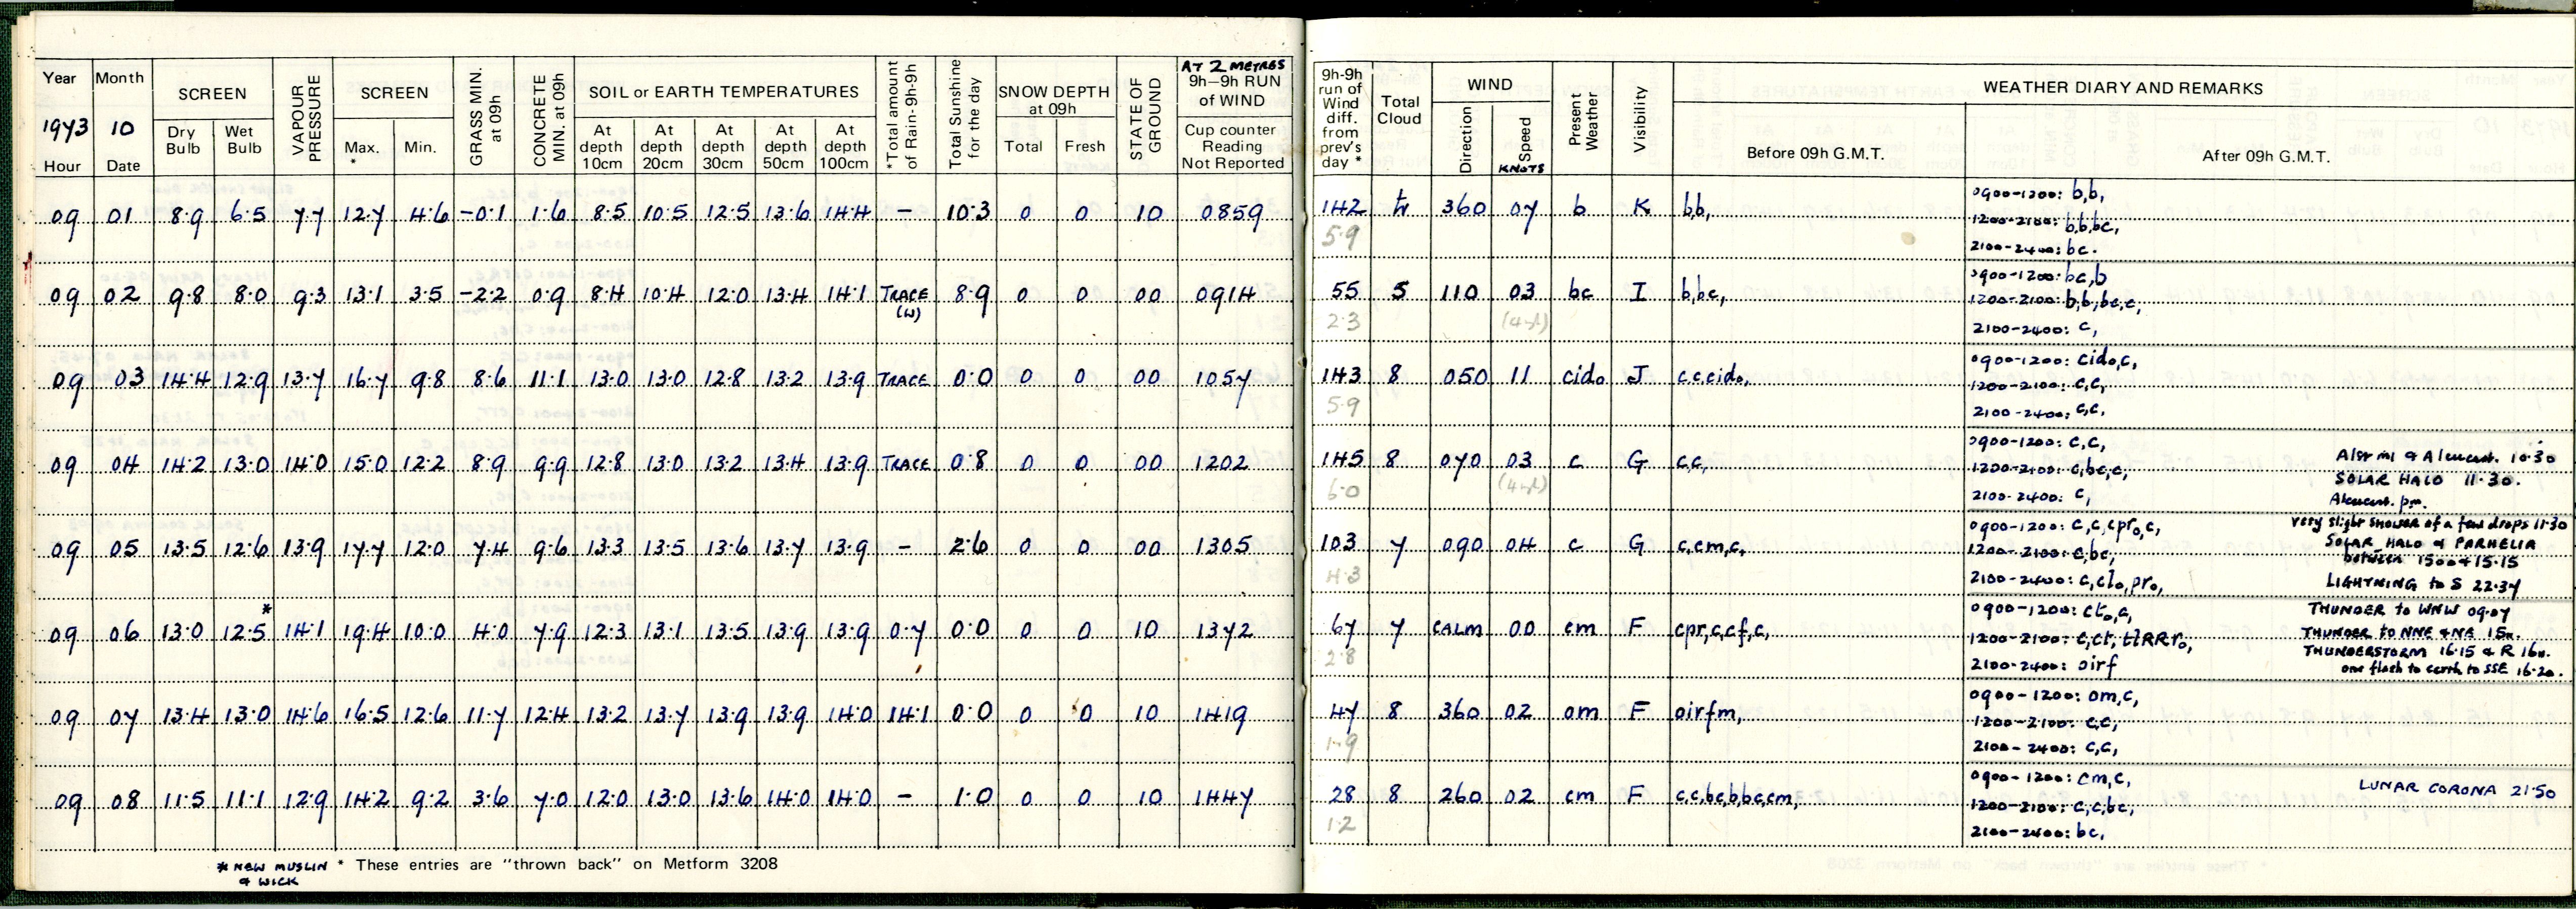 Year Month SCREEN VAPOUR PRESSURE SCREEN GRASS MIN. at 09h CONCRETE MIN. at 09h SOIL or EARTH TEMPERATURES *Total amount of Rain-9h-9h Total Sunshine for the day SNOW DEPTH at 09h STATE OF GROUND AT 2 METRES 9h—9h RUN of WIND
1973 10 Dry Bulb Wet Bulb Max. * Min. At depth 10cm At depth 20cm At depth 30cm At depth 50cm At depth 100cm Total Fresh Cup counter Reading Not Reported
Hour Date
09 01 8.9 6.5 7.7 12.7 4.6 -0.1 1.6 8.5 10.5 12.5 13.6 14.4 - 10.3 0 0 10 0859
09 02 9.8 8.0 9.3 13.1 3.5 -2.2 0.9 8.4 10.4 12.0 13.4 14.1 TRACE (W) 8.9 0 0 00 0914
09 03 14.4 12.9 13.7 16.7 9.8 8.6 11.1 13.0 13.0 12.8 13.2 13.9 TRACE 0.0 0 0 00 1057
09 04 14.2 13.0 14.0 15.0 12.2 8.9 9.9 12.8 13.0 13.2 13.4 13.9 TRACE 0.8 0 0 00 1202
09 05 13.5 12.6 13.9 17.7 12.0 7.4 9.6 13.3 13.5 13.6 13.7 13.9 - 2.6 0 0 00 1305
09 06 13.0 12.5* 14.1 19.4 10.0 4.0 7.9 12.3 13.1 13.5 13.9 13.9 0.7 0.0 0 0 10 1372
09 07 13.4 13.0 14.6 16.5 12.6 11.7 12.4 13.2 13.7 13.9 13.9 14.0 14.1 0.0 0 0 10 1419
09 08 11.5 11.1 12.9 14.2 9.2 3.6 7.0 12.0 13.0 13.6 14.0 14.0 - 1.0 0 0 10 1447
* NEW MUSLIN & WICK
* These entries are "thrown back" on Metform 3208
9h-9h run of Wind diff. from prev's day * Total Cloud WIND Present Weather Visibility WEATHER DIARY AND REMARKS
Direction Speed KNOTS Before 09h G.M.T. After 09h G.M.T.
142 tr 360 07 b K bb,
5.9
0900-1200: b,b,
1200-2100: b,b,bc,
2100-2400: bc.
55 5 110 03 bc I b,bc,
2.3
0900-1200: bc,b
1200-2100: b,b,bc,c,
2100-2400: c,
143 8 050 11 cido J c,c,cido,
5.9
0900-1200: cido,c,
1200-2100: c,c,
2100-2400: c,c,
145 8 070 03 c G c,c,
6.0
0900-1200: c,c,
10.30
1200-2100: c,bc,c,
SOLAR HALO 11.30.
2100-2400: c,
103 7 090 04 c G c,cm,c,
4.3
0900-1200: c,c,cpro,c, very slight shower of a few drops 11.30
SOLAR HALO & PARHELIA
1200-2100: c,bc, between 1500 & 15.15
2100-2400: c,clo,pro, LIGHTNING to S 22.37
67 7 CALM 00 cm F cpr,c,cf,c,
2.8
0900-1200: cto,c, THUNDER to WNW 09.07
1200-2100: c,ct,tlRRro, THUNDER to NNE & NE
THUNDERSTORM 16.15 & R
2100-2400: oirf one flash to earth to SSE 16.20.
47 8 360 02 om F oirfm,
1.9
0900-1200: om,c,
1200-2100: c,c,
2100-2400: c,c,
28 8 260 02 cm F c,c,bc,b,bc,cm,
1.2
0900-1200: cm,c, LUNAR CORONA 21.50
1200-2100: c,c,bc,
2100-2400: bc,